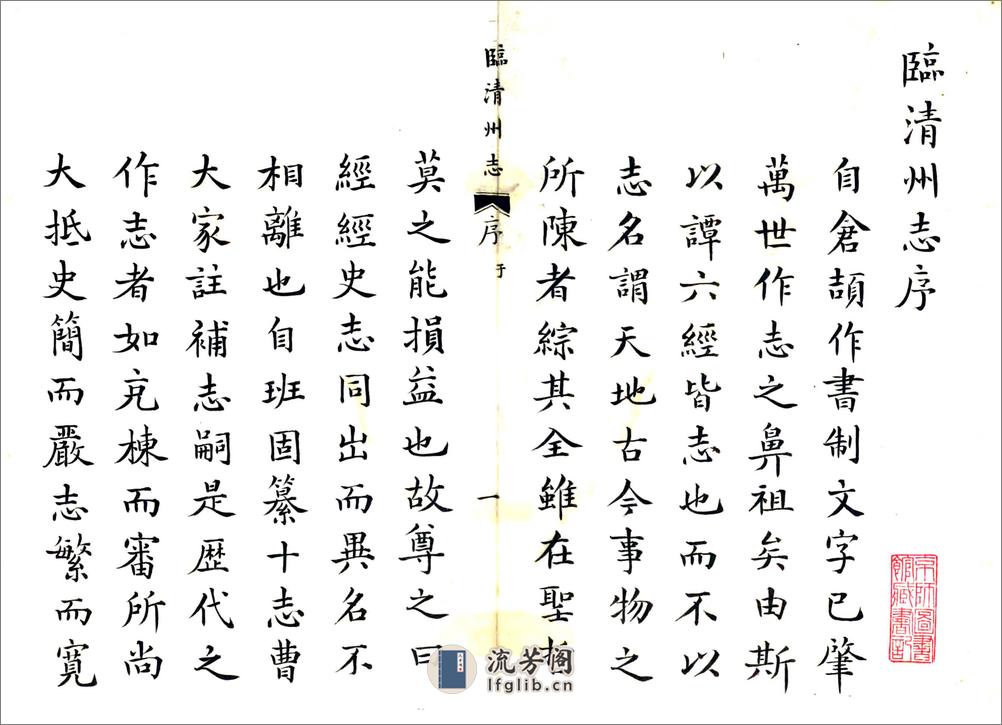 臨清州志序
自倉頡作書制文字已肇
萬世作志之鼻祖矣由斯
以譚六經皆志也而不以
志名謂天地古今事物之
所陳者綜其全雖在聖哲
臨清州志
序
于
一
莫之能損益也故尊之曰
經經史志同出而異名不
相離也自班固纂十志曹
大家註補志嗣是歷代之
作志者如充棟而審所尚
大抵史簡而嚴志繁而寬
京師圖書
館藏書記
流芳阁
lfglib.cn